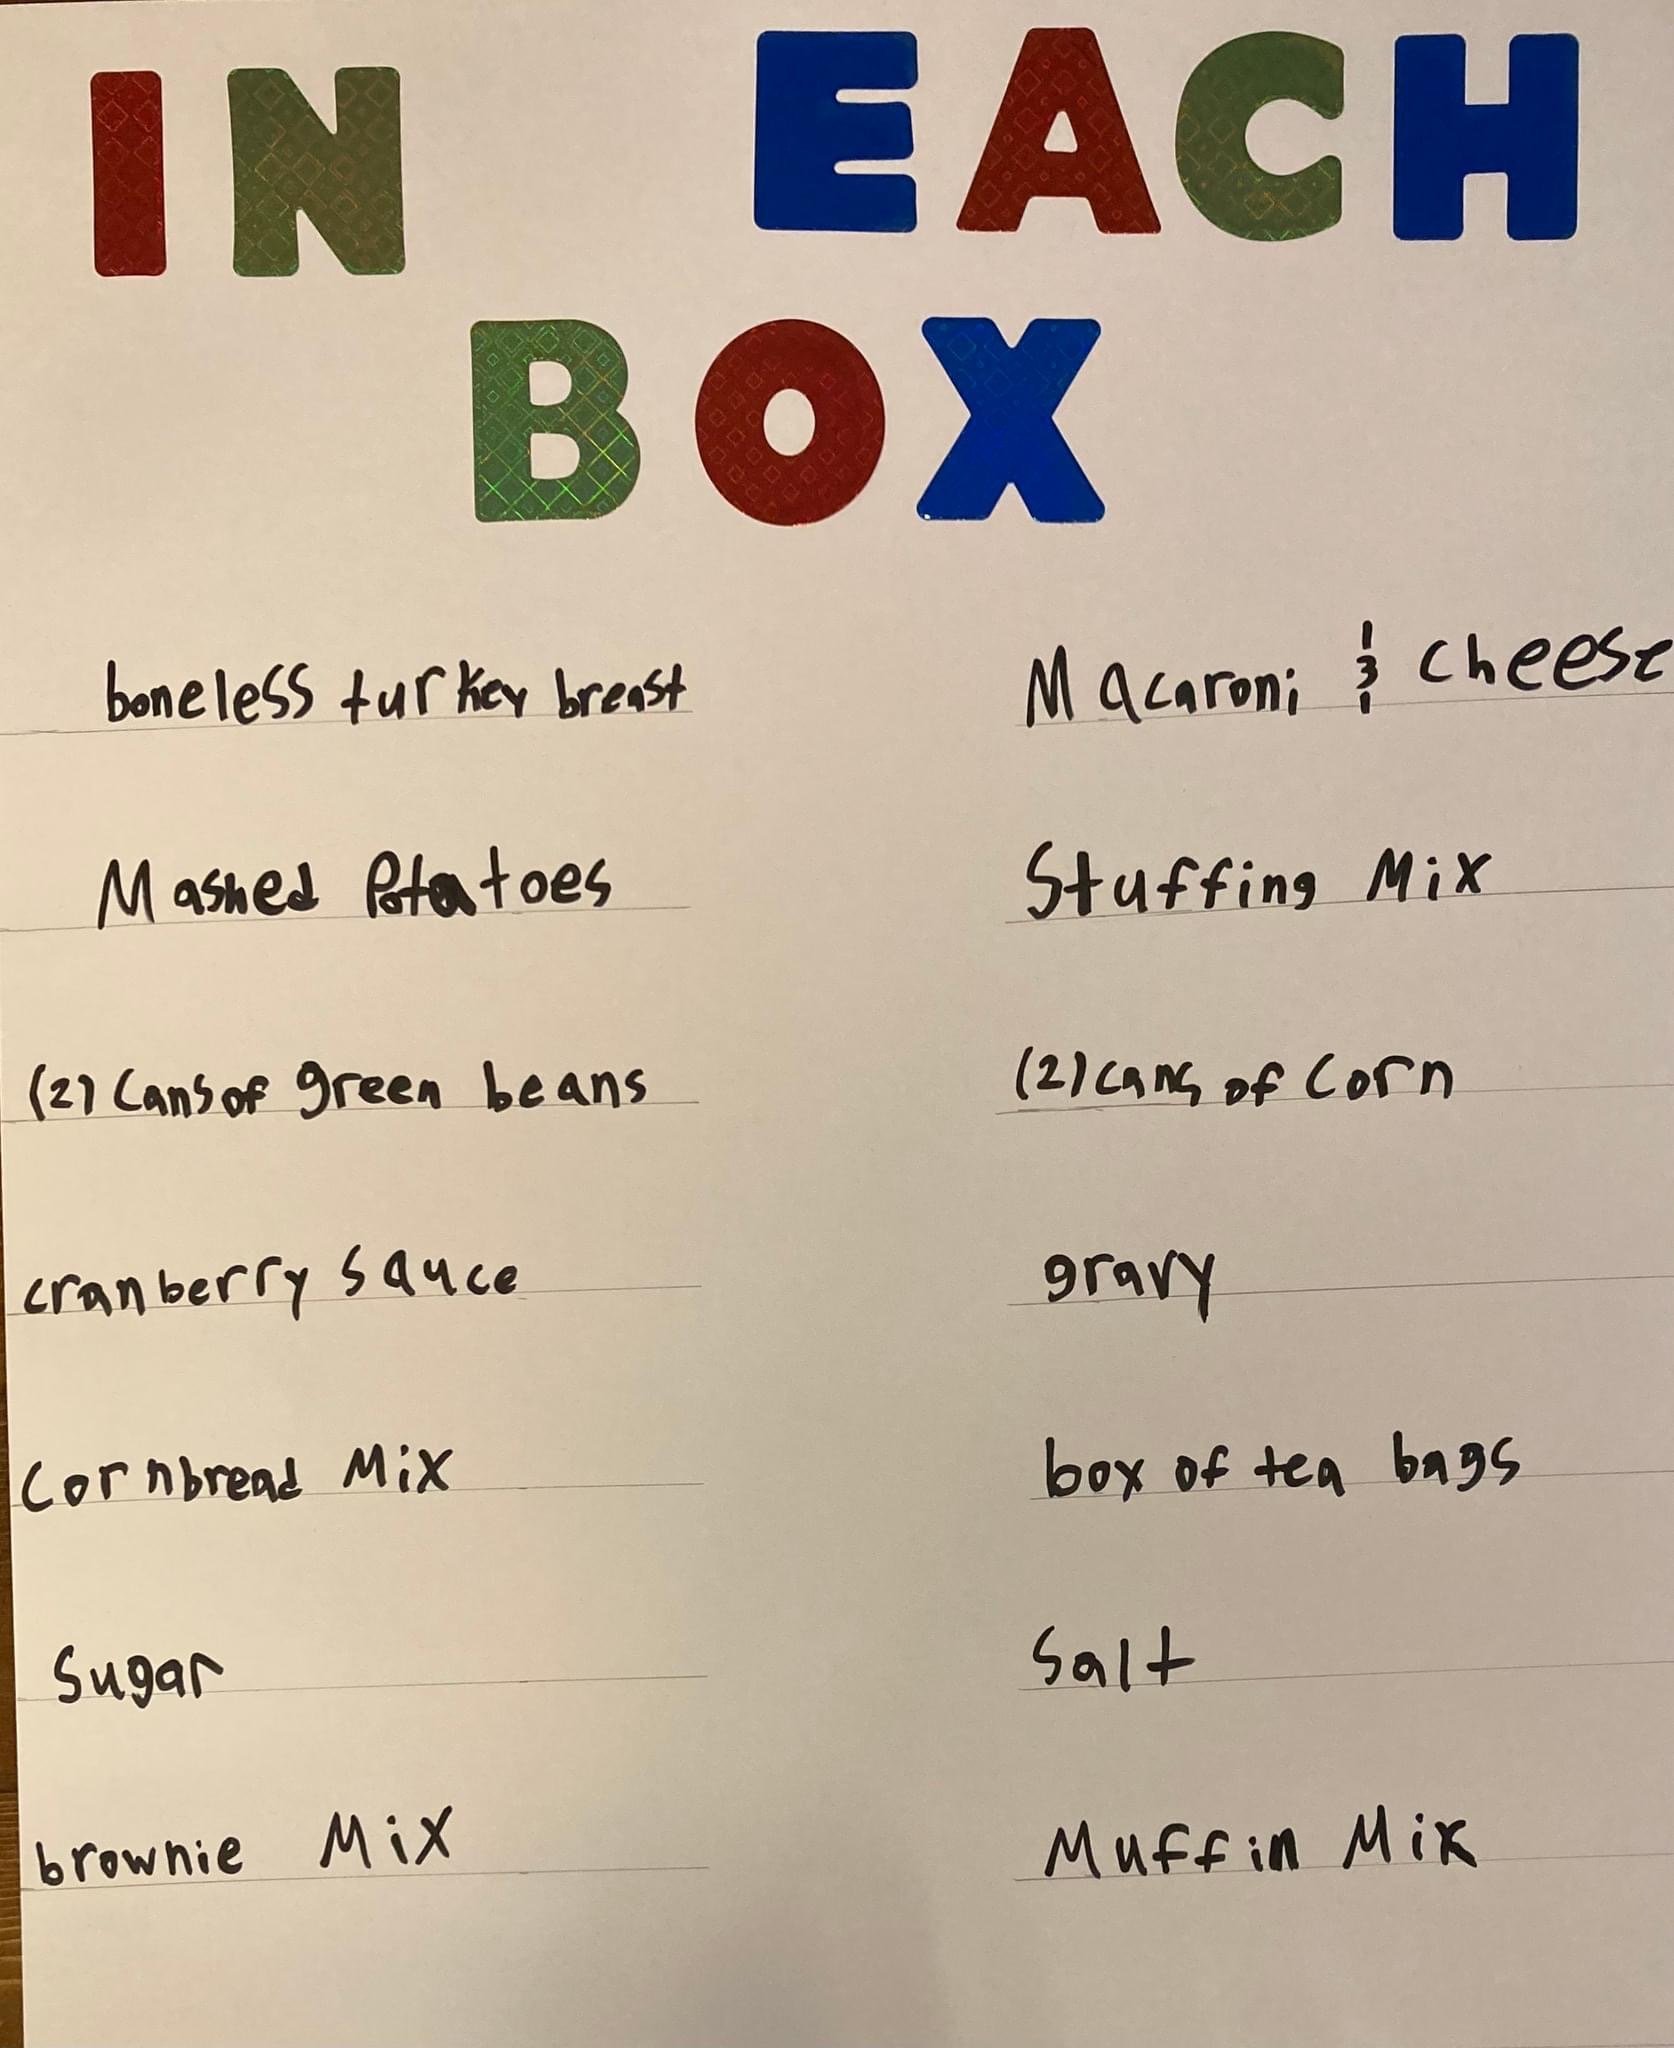 IN EACH
BOX
boneless turkey breast
Macaroni & cheese
Mashed Potatoes
Stuffing Mix
(2) Cans of green beans
(2) cans of Corn
cranberry sauce
gravy
Cornbread Mix
box of tea bags
Sugar
Salt
brownie Mix
Muffin Mix